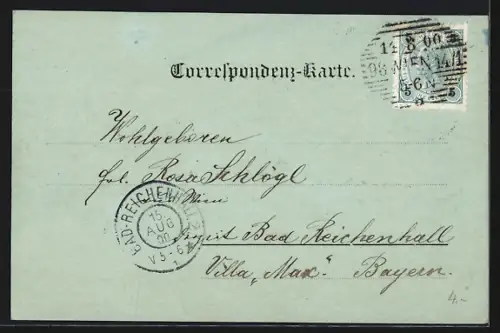 14 8 00
98 WIEN 14/1
6 N
5 5
Correspondenz-Karte.
Wohlgeboren
frl. Rosa Schlögl
Wien
BAD-REICHENHALL
15
AUG
00
V 5-6
Bad Reichenhall
Villa „Max“ Bayern
4.-